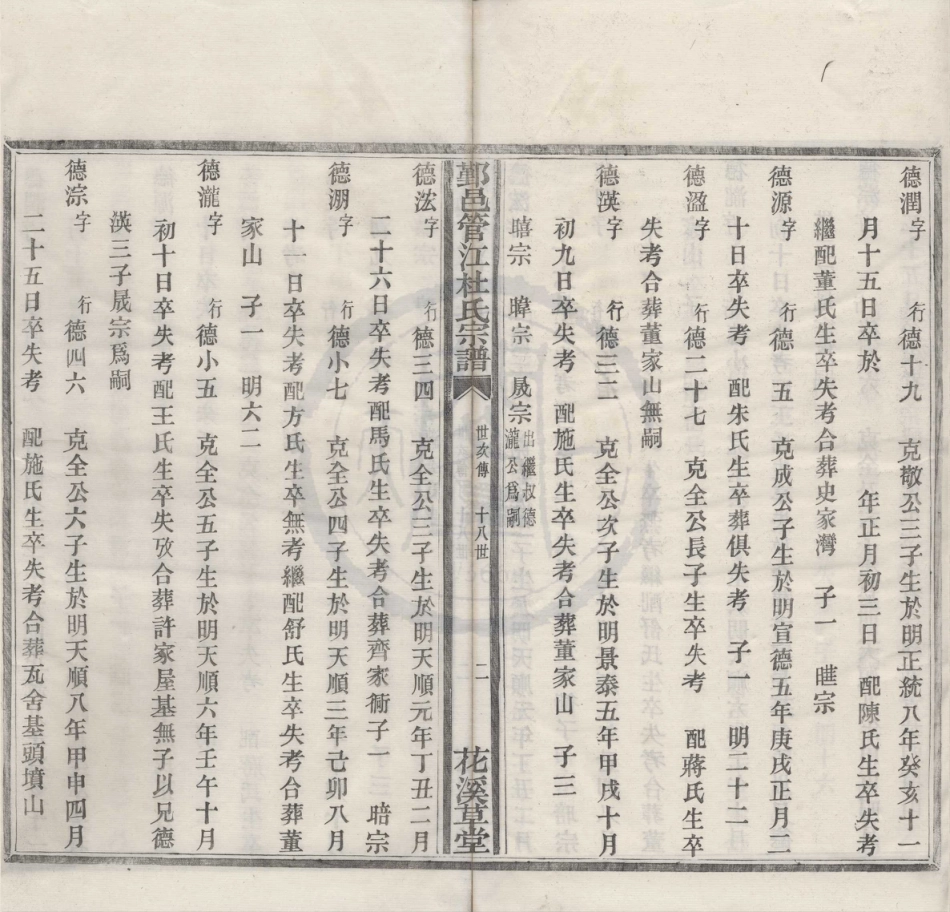 德潤字 行德十九 克敬公三子生於明正統八年癸亥十一
月十五日卒於 年正月初三日 配陳氏生卒失考
繼配董氏生卒失考合葬史家灣 子一 㫰宗
德源字 行德 五 克成公子生於明宣德五年庚戌正月二
十日卒失考 配朱氏生卒葬俱失考 子一 明二十二
德溋字 行德二十七 克全公長子生卒失考 配蔣氏生卒
失考合葬董家山無嗣
德渶字 行德三二 克全公次子生於明景泰五年甲戌十月
初九日卒失考 配施氏生卒失考合葬董家山 子三
暿宗 暐宗 晟宗出繼叔德瀧公爲嗣
鄞邑管江杜氏宗譜 世次傳 十八世 二 花溪草堂
德浤字 行德三四 克全公三子生於明天順元年丁丑二月
二十六日卒失考配馬氏生卒失考合葬齊家衕子一 暗宗
德淜字 行德小七 克全公四子生於明天順三年己卯八月
十一日卒失考配方氏生卒無考繼配舒氏生卒失考合葬董
家山 子一 明六二
德瀧字 行德小五 克全公五子生於明天順六年壬午十月
初十日卒失考配王氏生卒失攷合葬許家屋基無子以兄德
渶三子晟宗爲嗣
德淙字 行德四六 克全公六子生於明天順八年甲申四月
二十五日卒失考 配施氏生卒失考合葬瓦舍基頭墳山